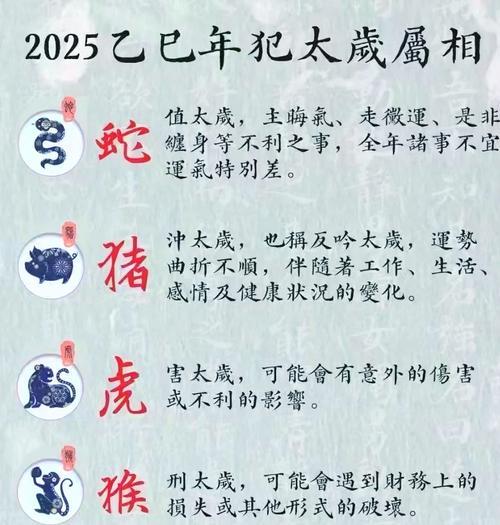 2025乙巳年犯太歲屬相
蛇
蛇
值太歲，主晦氣、走黴運、是非
纏身等不利之事，全年諸事不宜
運氣特別差。
豬
沖太歲，也稱反吟太歲，運勢
曲折不順，伴隨著工作、生活、
感情及健康狀況的變化。
虎
虎
害太歲，可能會有意外的傷害
或不利的影響。
猴
刑太歲，可能會遇到財務上的
損失或其他形式的破壞。